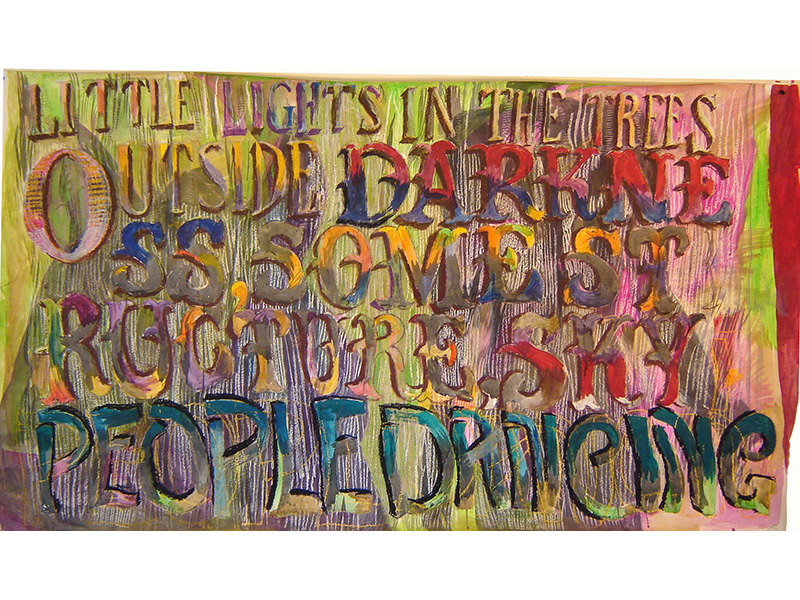 LITTLE LIGHTS IN THE TREES
OUTSIDE DARKNE
SS, SOME ST
RUCTURE, SKY
PEOPLE DANCING